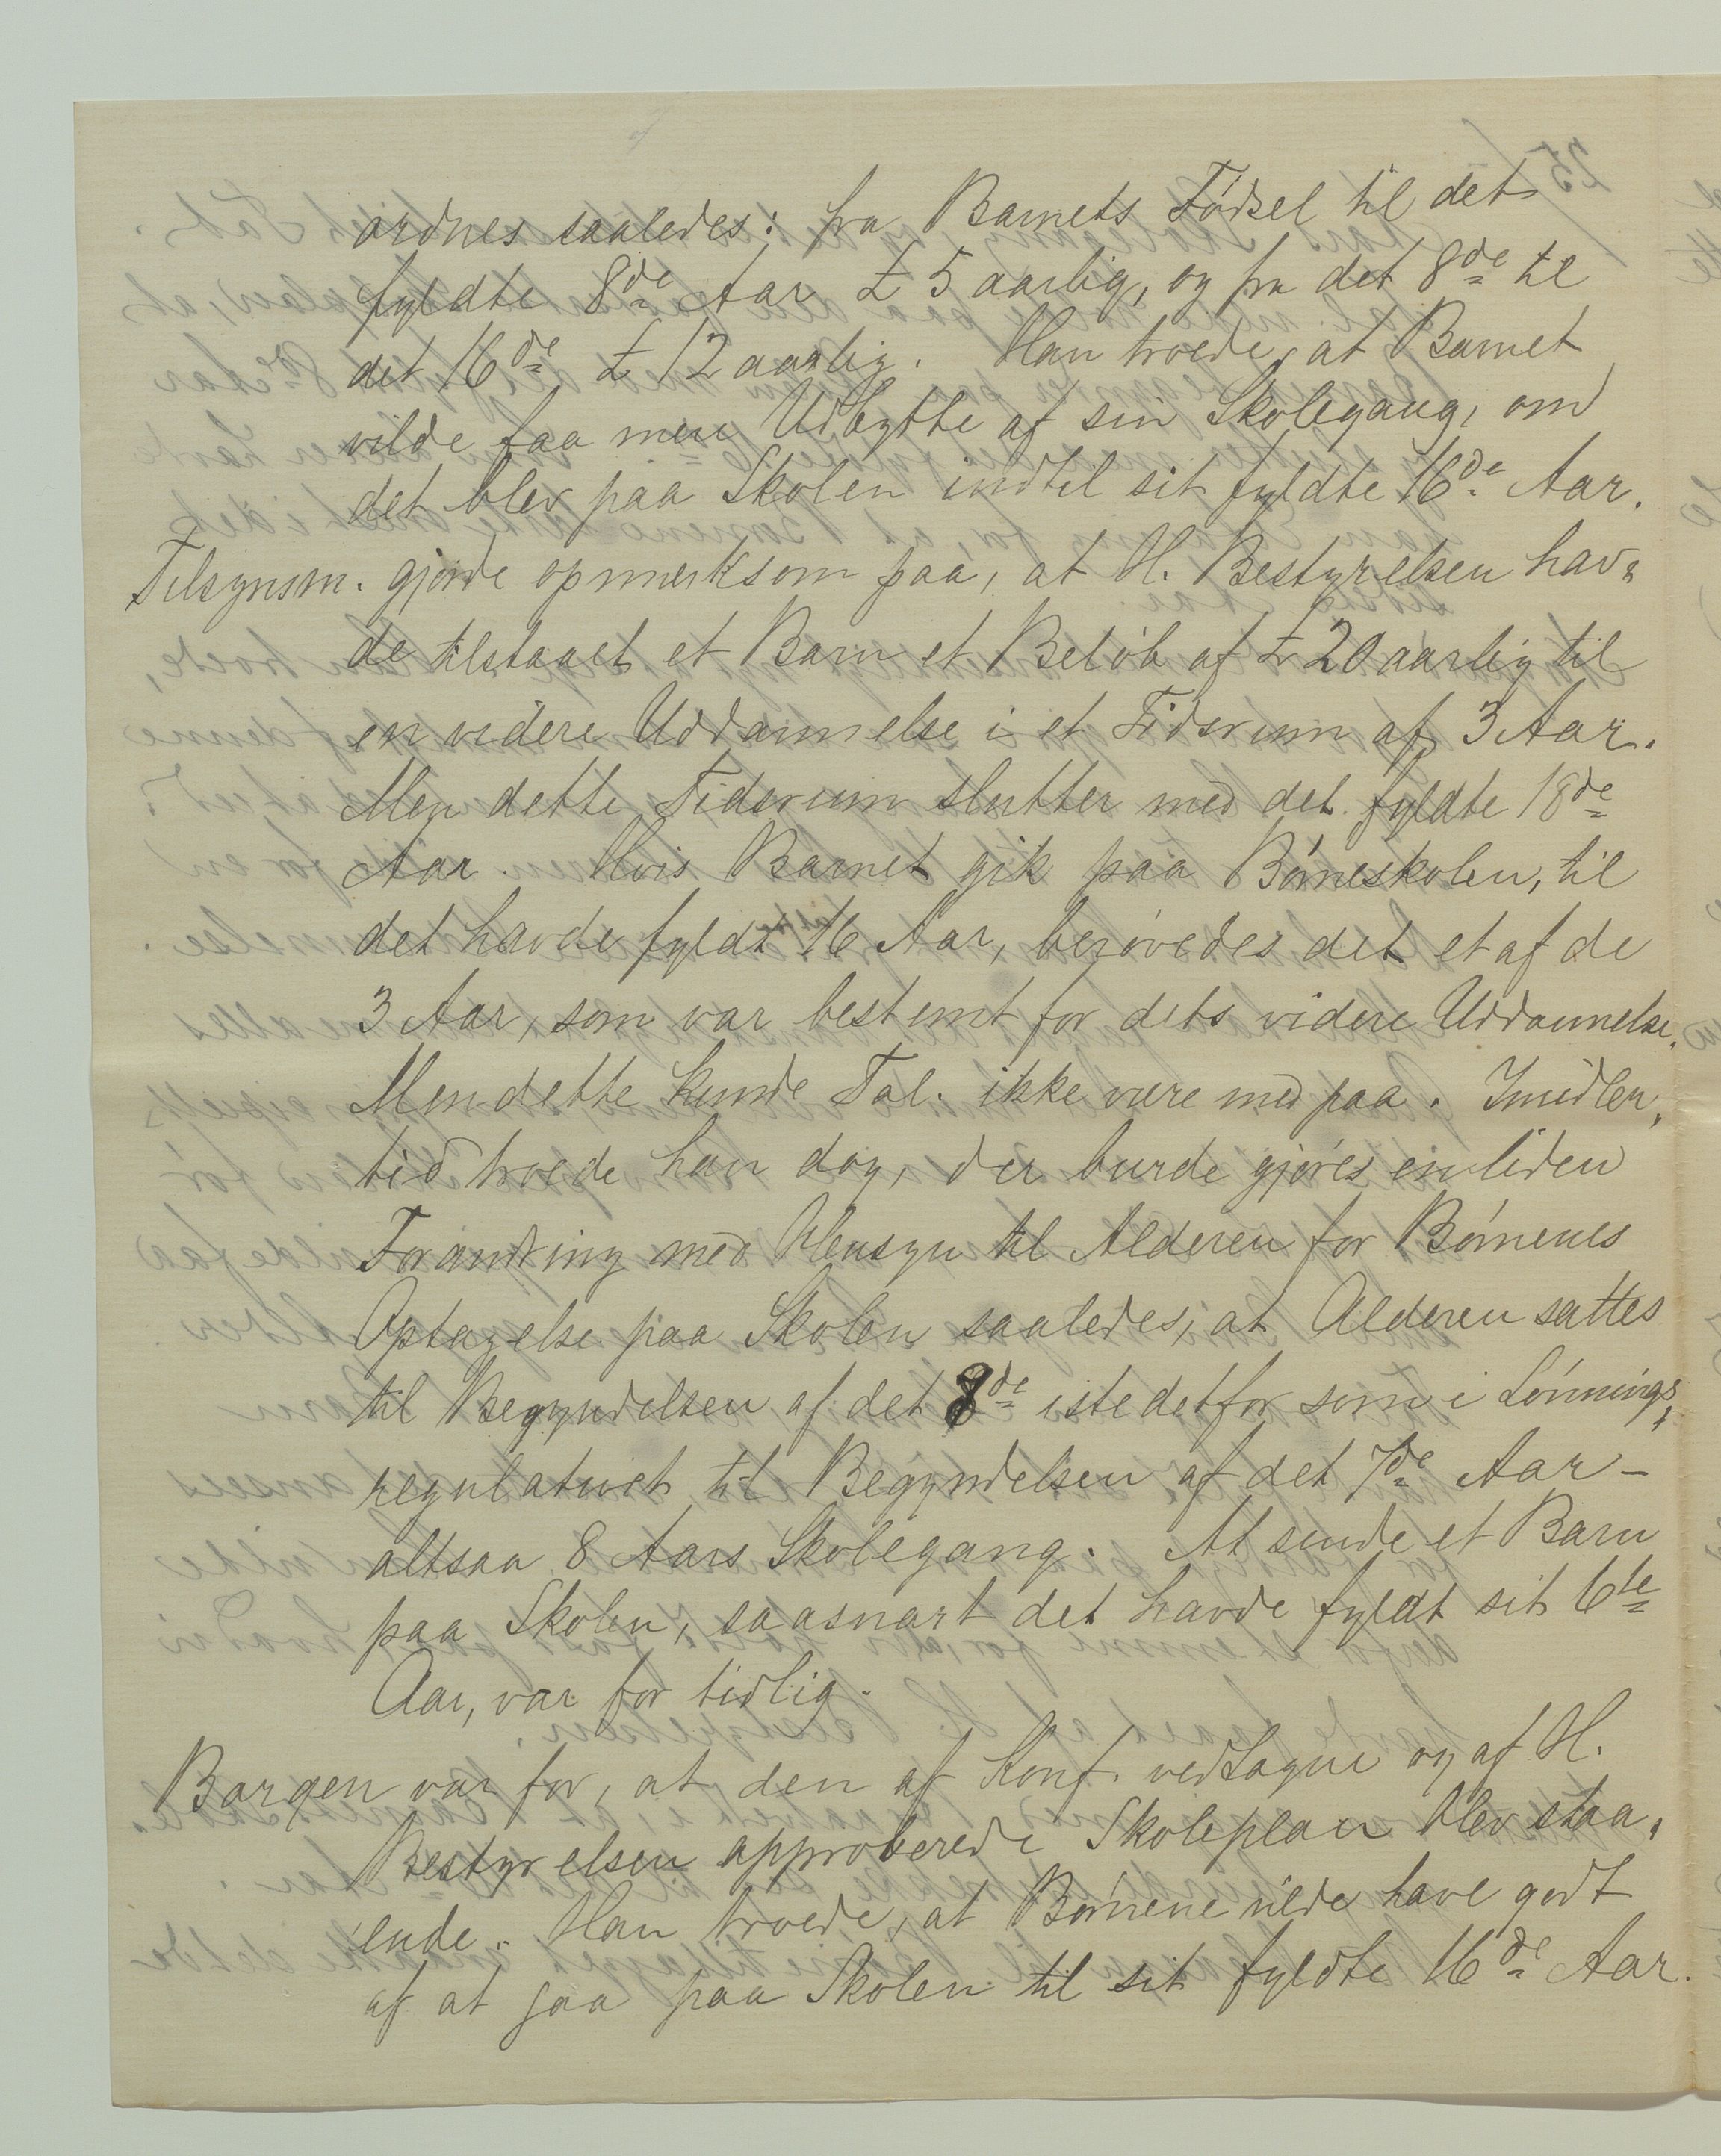 ordnes saaledes: fra Barnets Fødsel til det
fyldte 8de Aar £ 5 aarlig, og fra det 8de til
det 16de £ 12 aarlig. Han troede, at Barnet
vilde faa mere Udbytte af sin Skolegang, om
det blev paa Skolen indtil sit fyldte 16de Aar.
Tilsynsm. gjorde opmerksom paa, at H. Bestyrelsen hav„
de tilstaaet et Barn et Beløb af £ 20 aarlig til
en videre Uddannelse i et Tidsrum af 3 Aar.
Men dette Tidsrum slutter med det fyldte 18de
Aar. Hvis Barnet gik paa Børneskolen, til
det havde fyldt 16 Aar, berøvedes det et af de
3 Aar, som var bestemt for dets videre Uddannelse.
Men dette kunde Tal. ikke være med paa. Imidler„
tid troede han dog, der burde gjøres en liden
Forandring med Hensyn til Alderen for Børnenes
Optagelse paa Skolen saaledes, at Alderen sattes
til Begyndelsen af det 8de istedetfor som i Lønnings„
regulativet til Begyndelsen af det 7de Aar –
altsaa 8 Aars Skolegang. At sende et Barn
paa Skolen, saasnart det havde fyldt sit 6te
Aar, var for tidlig.
Borgen var for, at den af Konf. vedtagne og af H.
Bestyrelsen approberede Skoleplan blev staa„
ende. Han troede, at Børnene vilde have godt
af at gaa paa Skolen til sit fyldte 16de Aar.